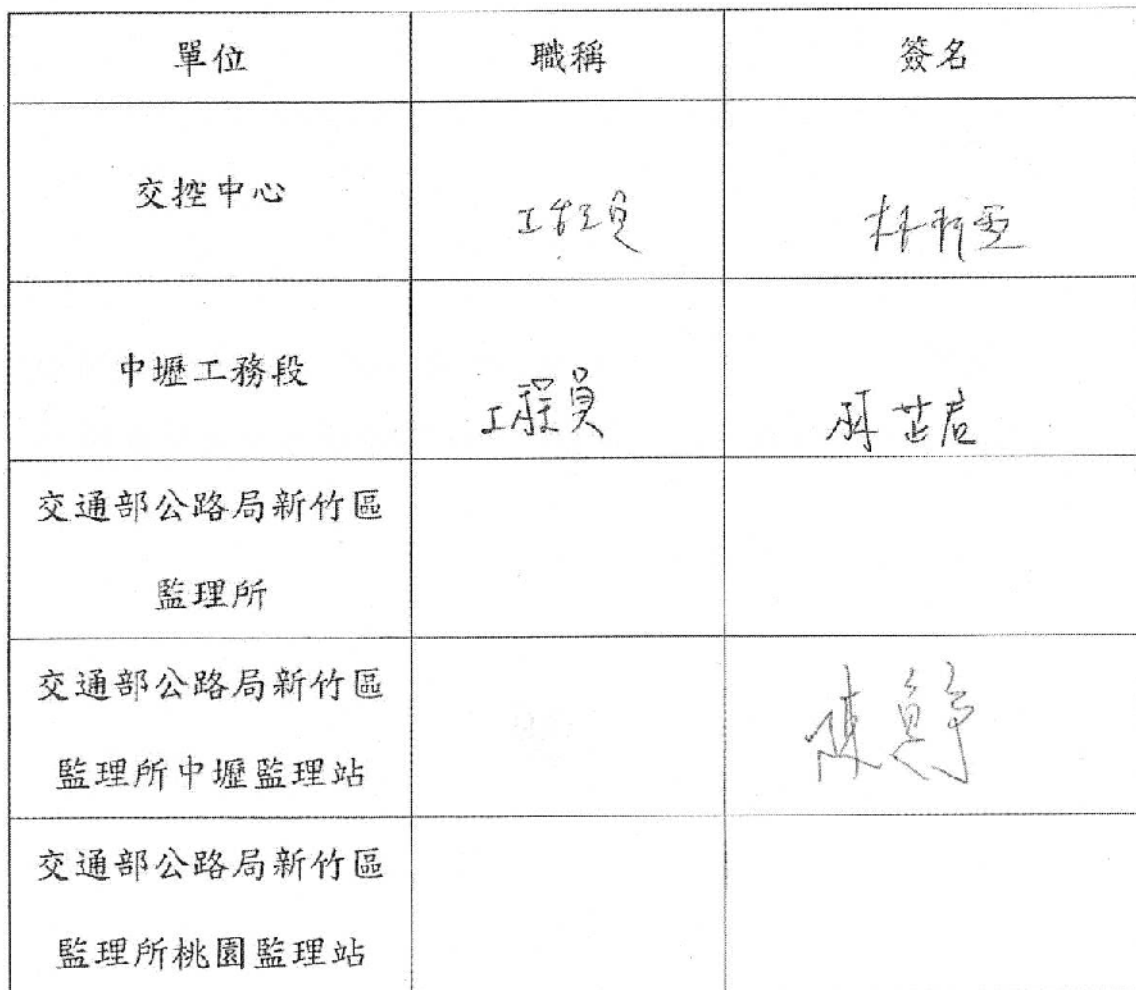 單位 職稱 簽名
交控中心 工程員
中壢工務段 工程員
交通部公路局新竹區
監理所
交通部公路局新竹區
監理所中壢監理站 陳
交通部公路局新竹區
監理所桃園監理站